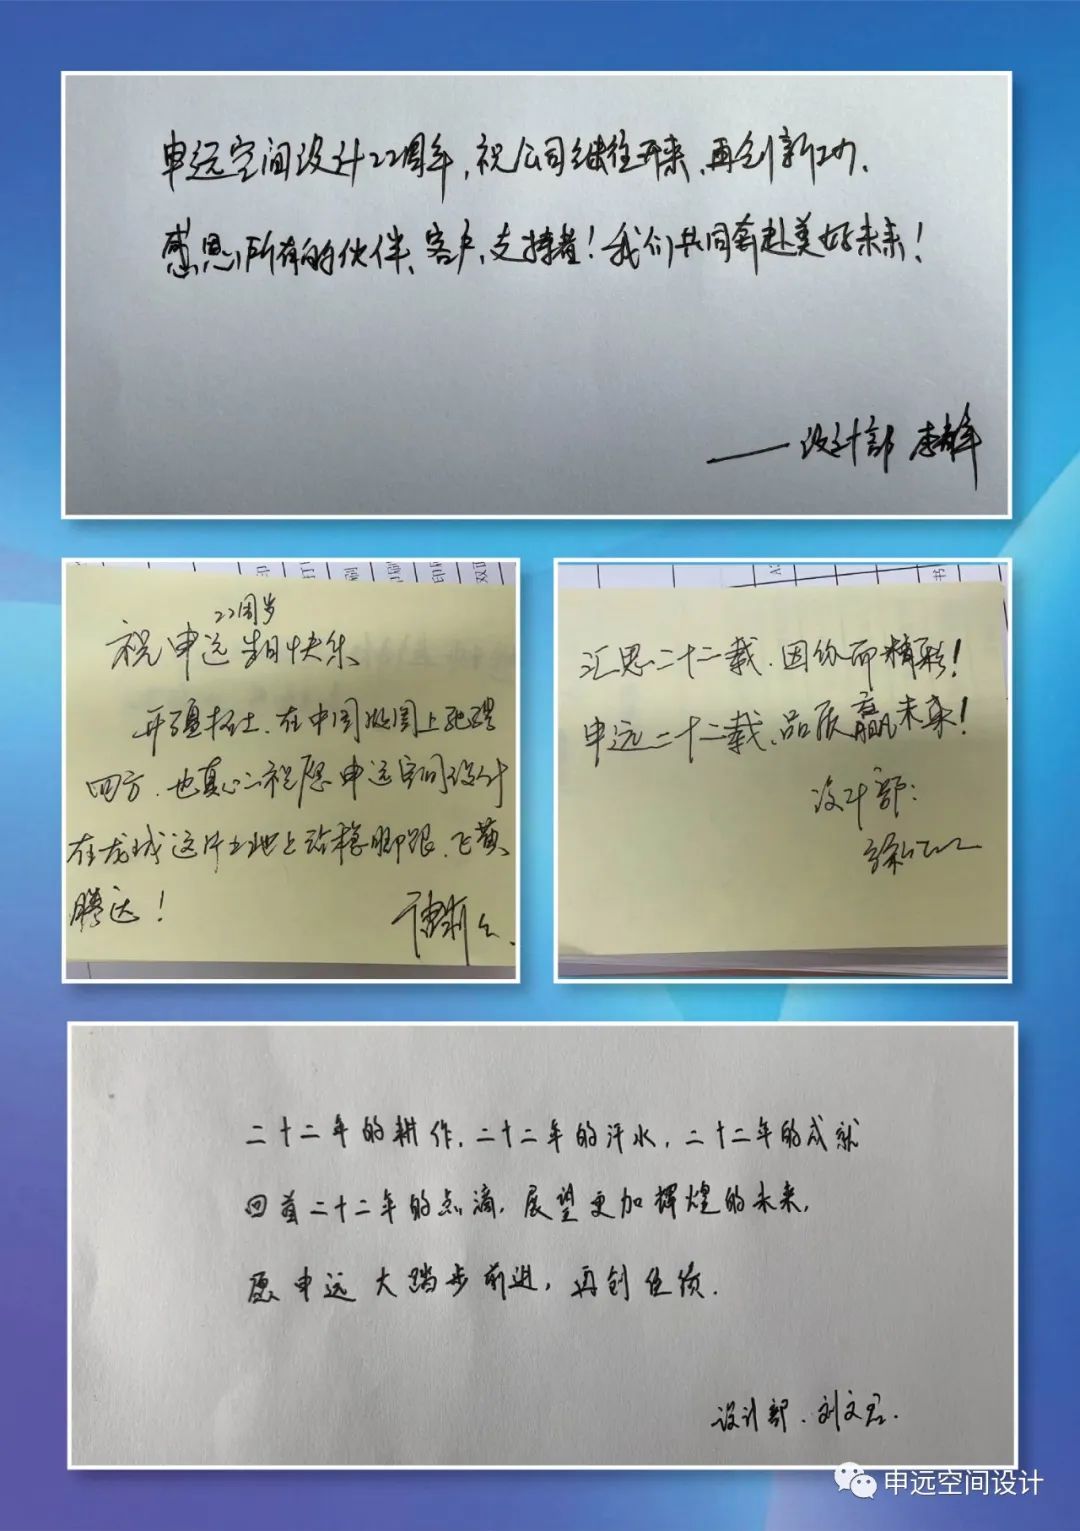 申远空间设计22周年,祝公司继往开来、再创新功、
感恩所有的伙伴、客户、支持者!我们共同奔赴美好未来!
——设计部
22周岁
祝申远生日快乐
开疆拓土、在中国版图上驰骋
四方、也真心祝愿申远空间设计
在龙城这片土地上站稳脚跟、飞黄
腾达!
汇思二十二载、因你而精彩!
申远二十二载、品质赢未来!
设计部:
二十二年的耕作,二十二年的汗水,二十二年的成就
回首二十二年的点滴,展望更加辉煌的未来,
愿申远大踏步前进,再创佳绩.
设计部、刘文君.
申远空间设计